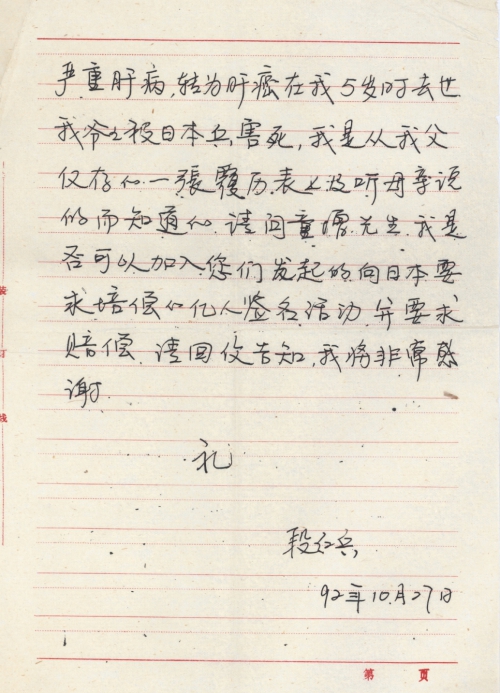 严重肝病，转为肝癌在我5岁时去世
我爷爷被日本兵害死，我是从我父
仅存的一張履历表上及听母亲说
的而知道的。请问童增先生，我是
否可以加入您们发起的向日本要
求培偿的亿人签名活动，并要求
赔偿。请回信告知，我将非常感
谢
礼
段红兵
92年10月27日
装
订
线
第 页